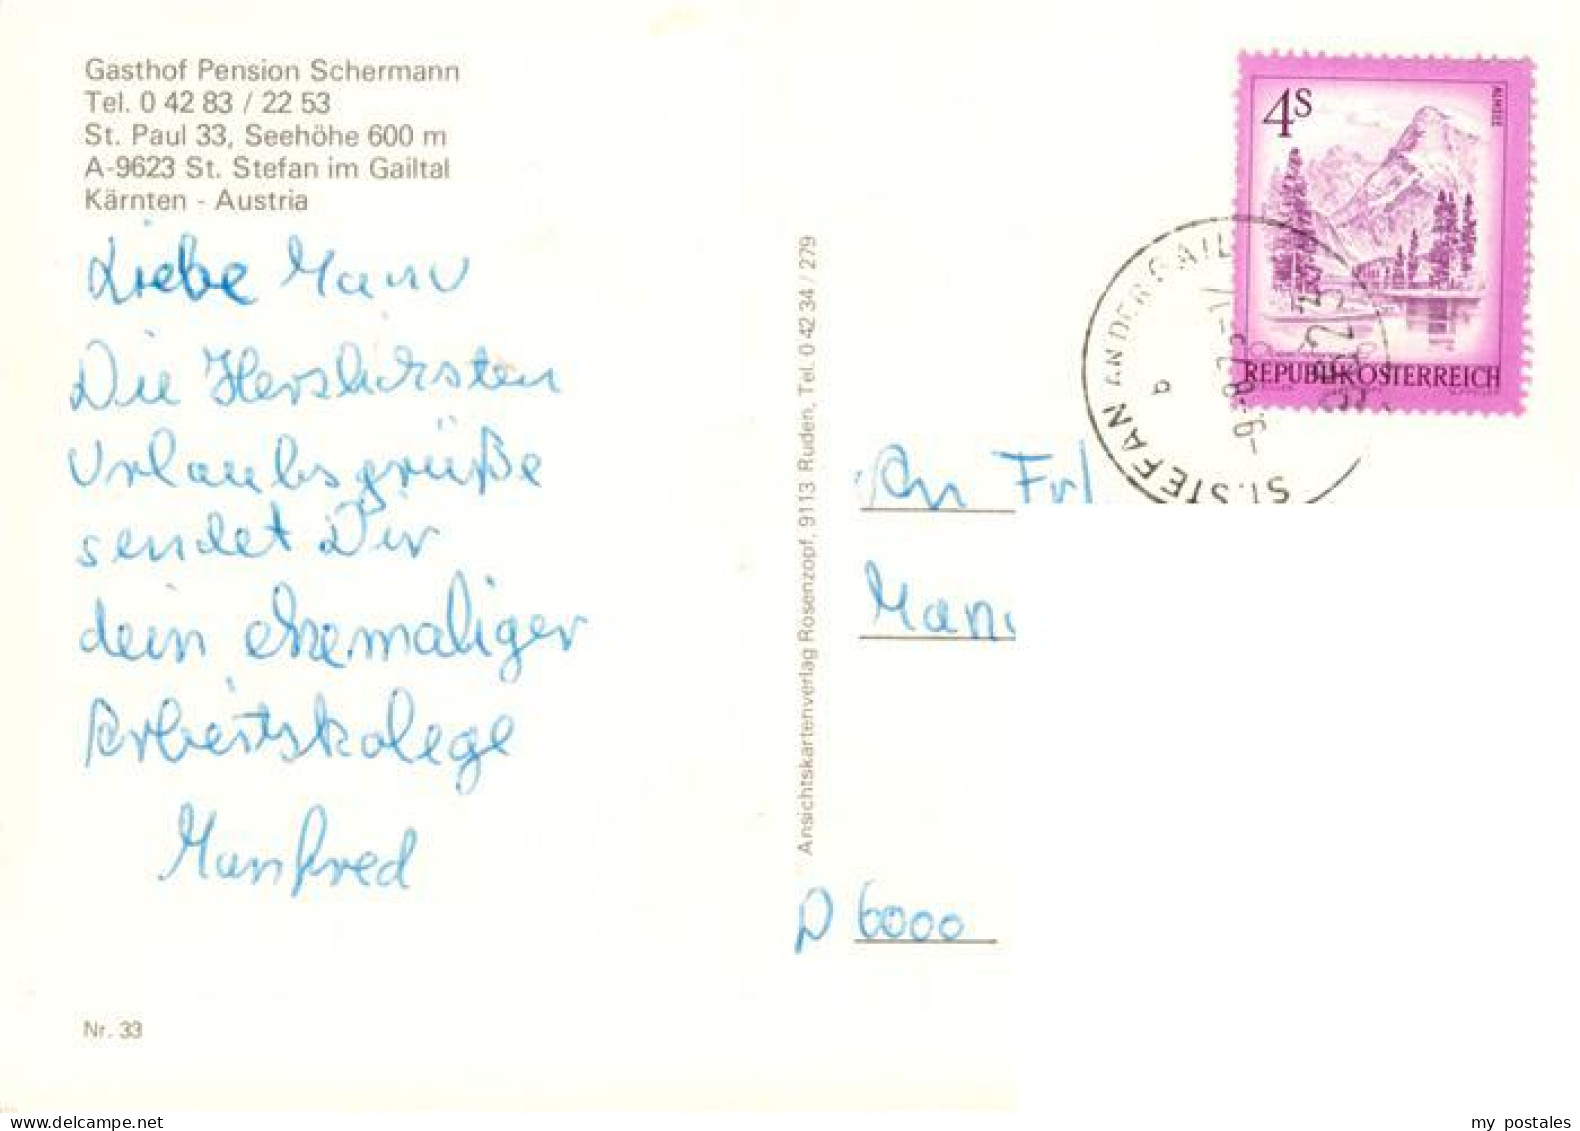 Gasthof Pension Schermann
Tel. 0 42 83 / 22 53
St. Paul 33, Seehöhe 600 m
A-9623 St. Stefan im Gailtal
Kärnten - Austria
Liebe Manu
Die Herslichsten
Urlaubsgrüße
sendet Dir
dein ehemaliger
Arbeitskolege
Manfred
Nr. 33
Ansichtskartenverlag Rosenzopf, 9113 Ruden, Tel. 0 42 34 / 279
4S
ALMSEE
REPUBLIK ÖSTERREICH
ST. STEFAN AN DER GAIL
b
An Frl
Manu
D 6000
my postales